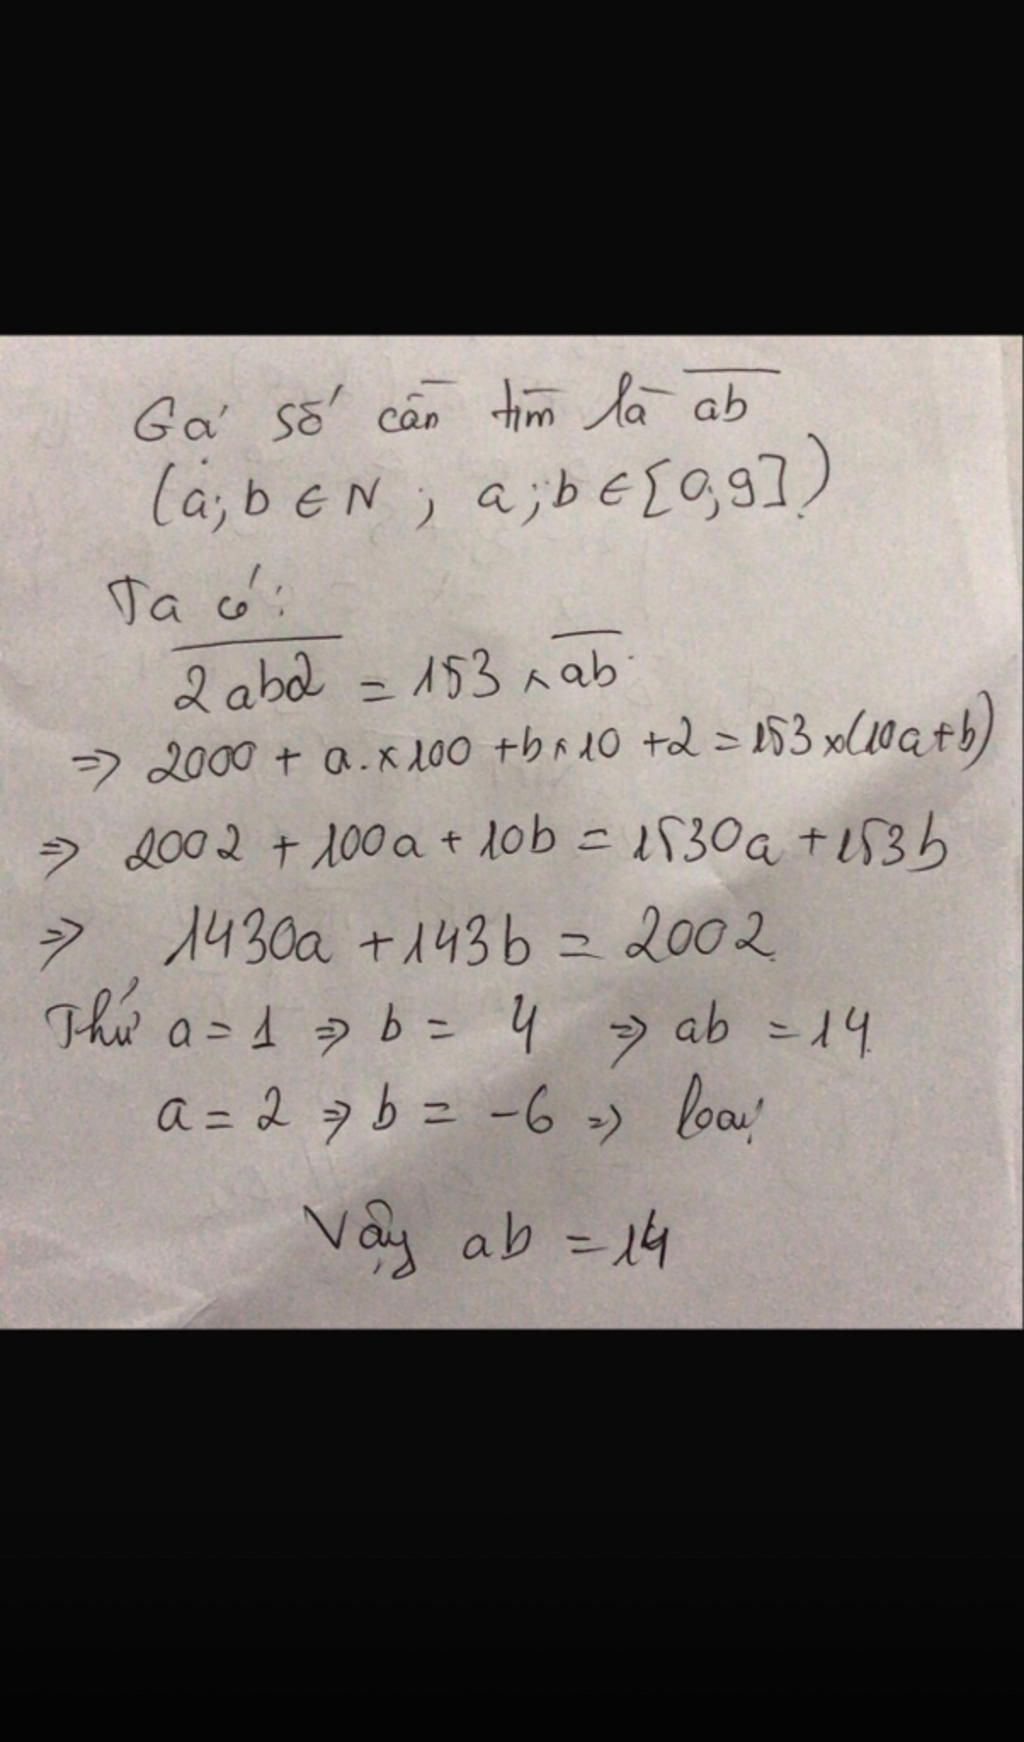 Gọi số cần tìm là ab
(a;b ∈ N ; a;b ∈ [0;9])
Ta có:
2ab2 = 153 x ab
=> 2000 + a.x100 + bx10 + 2 = 153x(10a+b)
=> 2002 + 100a + 10b = 1530a + 153b
=> 1430a + 143b = 2002
Thử a = 1 => b = 4 => ab = 14
a = 2 => b = -6 => loại
Vậy ab = 14